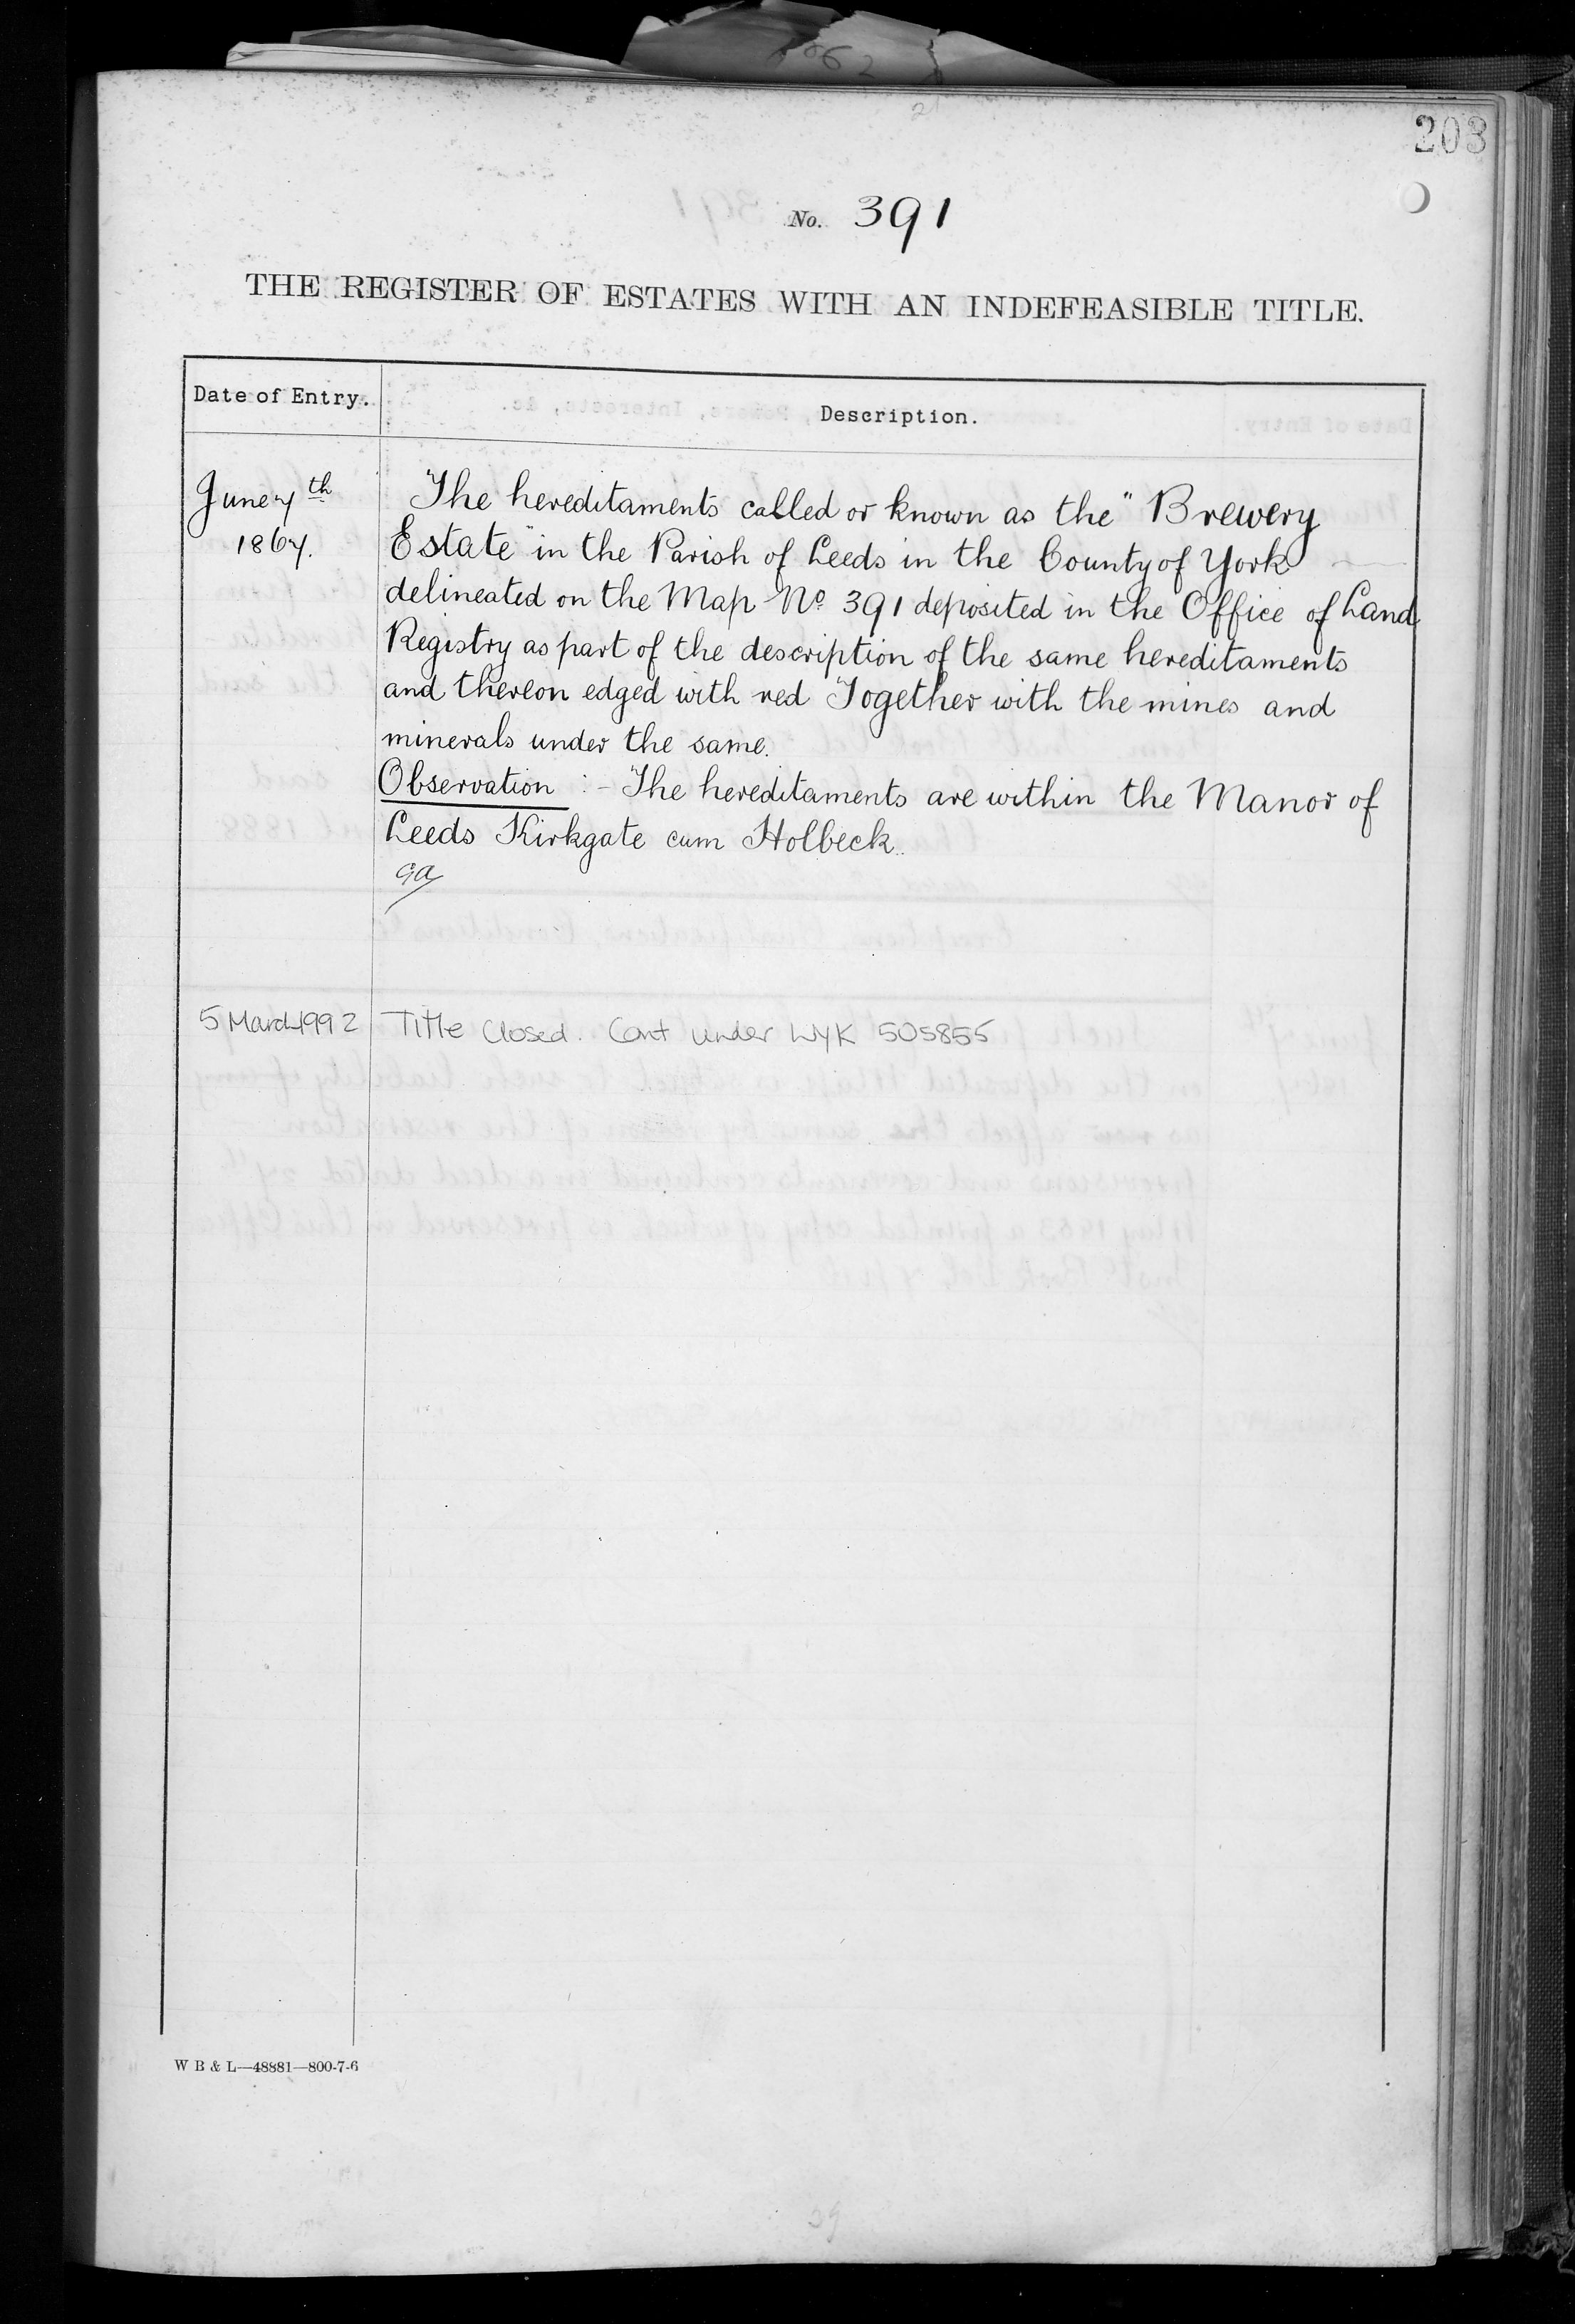 203
No. 391
THE REGISTER OF ESTATES WITH AN INDEFEASIBLE TITLE.
Date of Entry.
Description.
June 7th
1867.
The hereditaments called or known as the "Brewery
Estate" in the Parish of Leeds in the County of York
delineated on the Map No. 391 deposited in the Office of Land
Registry as part of the description of the same hereditaments
and thereon edged with red Together with the mines and
minerals under the same.
Observation :- The hereditaments are within the Manor of
Leeds Kirkgate cum Holbeck.
5 March 1992
Title Closed. Cont under WYK 505855
W B & L—48881—800-7-6